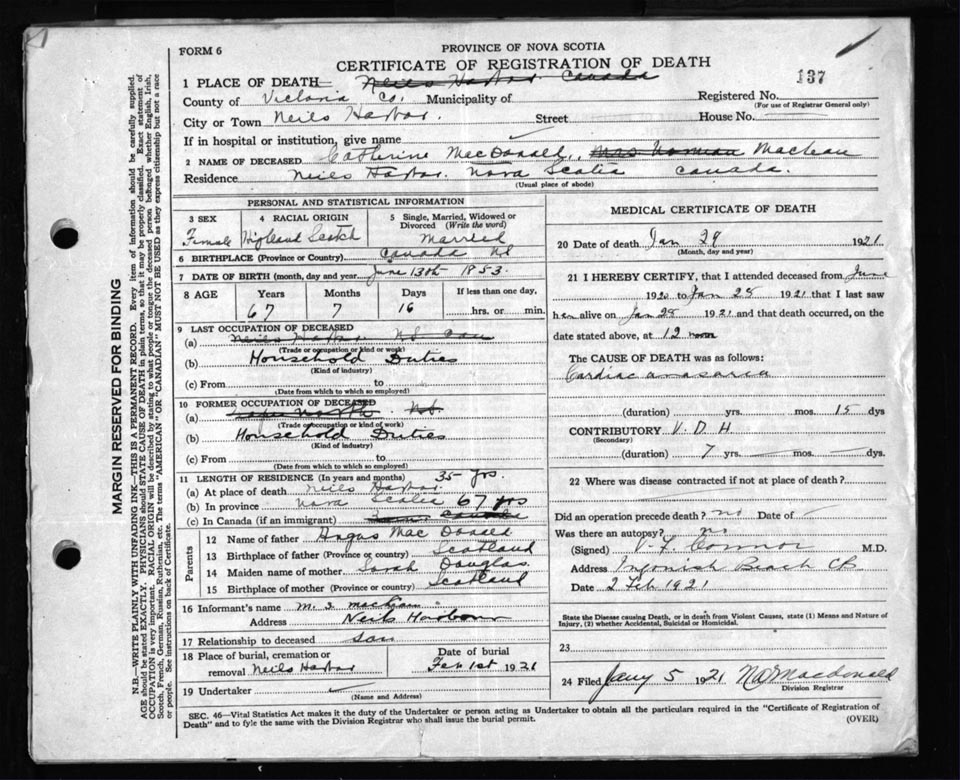 FORM 6
PROVINCE OF NOVA SCOTIA
CERTIFICATE OF REGISTRATION OF DEATH
137
1 PLACE OF DEATH Neils Harbor Canada
County of Victoria Co. Municipality of
Registered No.
(For use of Registrar General only)
City or Town Neils Harbor. Street House No.
If in hospital or institution, give name
2 NAME OF DECEASED Catherine MacDonald, Mrs Norman MacLean
Residence Neils Harbor Nova Scotia Canada.
(Usual place of abode)
PERSONAL AND STATISTICAL INFORMATION
3 SEX
Female
4 RACIAL ORIGIN
Highland Scotch
5 Single, Married, Widowed or Divorced (Write the word)
Married
6 BIRTHPLACE (Province or Country) Canada NS
7 DATE OF BIRTH (month, day and year) June 13th 1853.
8 AGE Years Months Days If less than one day,
67 7 16 hrs. or min.
9 LAST OCCUPATION OF DECEASED
(a) Neils Harbor NS Can
(Trade or occupation or kind of work)
(b) Household Duties
(Kind of industry)
(c) From to
(Date from which to which so employed)
10 FORMER OCCUPATION OF DECEASED
(a) North NS.
(Trade or occupation or kind of work)
(b) Household Duties
(Kind of industry)
(c) From to
(Date from which to which so employed)
11 LENGTH OF RESIDENCE (In years and months) 35 yrs.
(a) At place of death Neils Harbor.
(b) In province Nova Scotia 67 yrs
(c) In Canada (if an immigrant) Canada
Parents
12 Name of father Angus MacDonald
13 Birthplace of father (Province or country) Scotland
14 Maiden name of mother Sarah Douglas
15 Birthplace of mother (Province or country) Scotland
16 Informant's name M. S. MacLean
Address Neils Harbour
17 Relationship to deceased son
18 Place of burial, cremation or removal Neils Harbor
Date of burial
Feb 1st 1921
19 Undertaker
(Name and Address)
MEDICAL CERTIFICATE OF DEATH
20 Date of death Jan 29 1921
(Month, day and year)
21 I HEREBY CERTIFY, that I attended deceased from June
1920 to Jan 28 1921 that I last saw
her alive on Jan 28 1921 and that death occurred, on the
date stated above, at 12 noon
The CAUSE OF DEATH was as follows:
Cardiac anasarca
(duration) yrs. mos. 15 dys
CONTRIBUTORY V. D. H.
(Secondary)
(duration) 7 yrs. mos. dys.
22 Where was disease contracted if not at place of death?
Did an operation precede death? no Date of
Was there an autopsy? no
(Signed) Connor M.D.
Address Ingonish Beach CB
Date 2 Feb 1921
State the Disease causing Death, or in death from Violent Causes, state (1) Means and Nature of
Injury, (2) whether Accidental, Suicidal or Homicidal.
23
24 Filed Jany 5 1921 Macdonald
Division Registrar
SEC. 46—Vital Statistics Act makes it the duty of the Undertaker or person acting as Undertaker to obtain all the particulars required in the "Certificate of Registration of
Death" and to fyle the same with the Division Registrar who shall issue the burial permit.
(OVER)
MARGIN RESERVED FOR BINDING
N.B.—WRITE PLAINLY WITH UNFADING INK—THIS IS A PERMANENT RECORD. Every item of information should be carefully supplied.
AGE should be stated EXACTLY. PHYSICIANS should STATE CAUSE OF DEATH in plain terms, so that it may be properly classified. Exact statement of
OCCUPATION is very important. RACIAL ORIGIN will be described by stating to what people or tongue the deceased person belonged whether English, Irish,
Scotch, French, German, Russian, Ruthenian, etc. The terms "AMERICAN" OR "CANADIAN" MUST NOT BE USED as they express citizenship but not a race
or people. See instructions on back of Certificate.